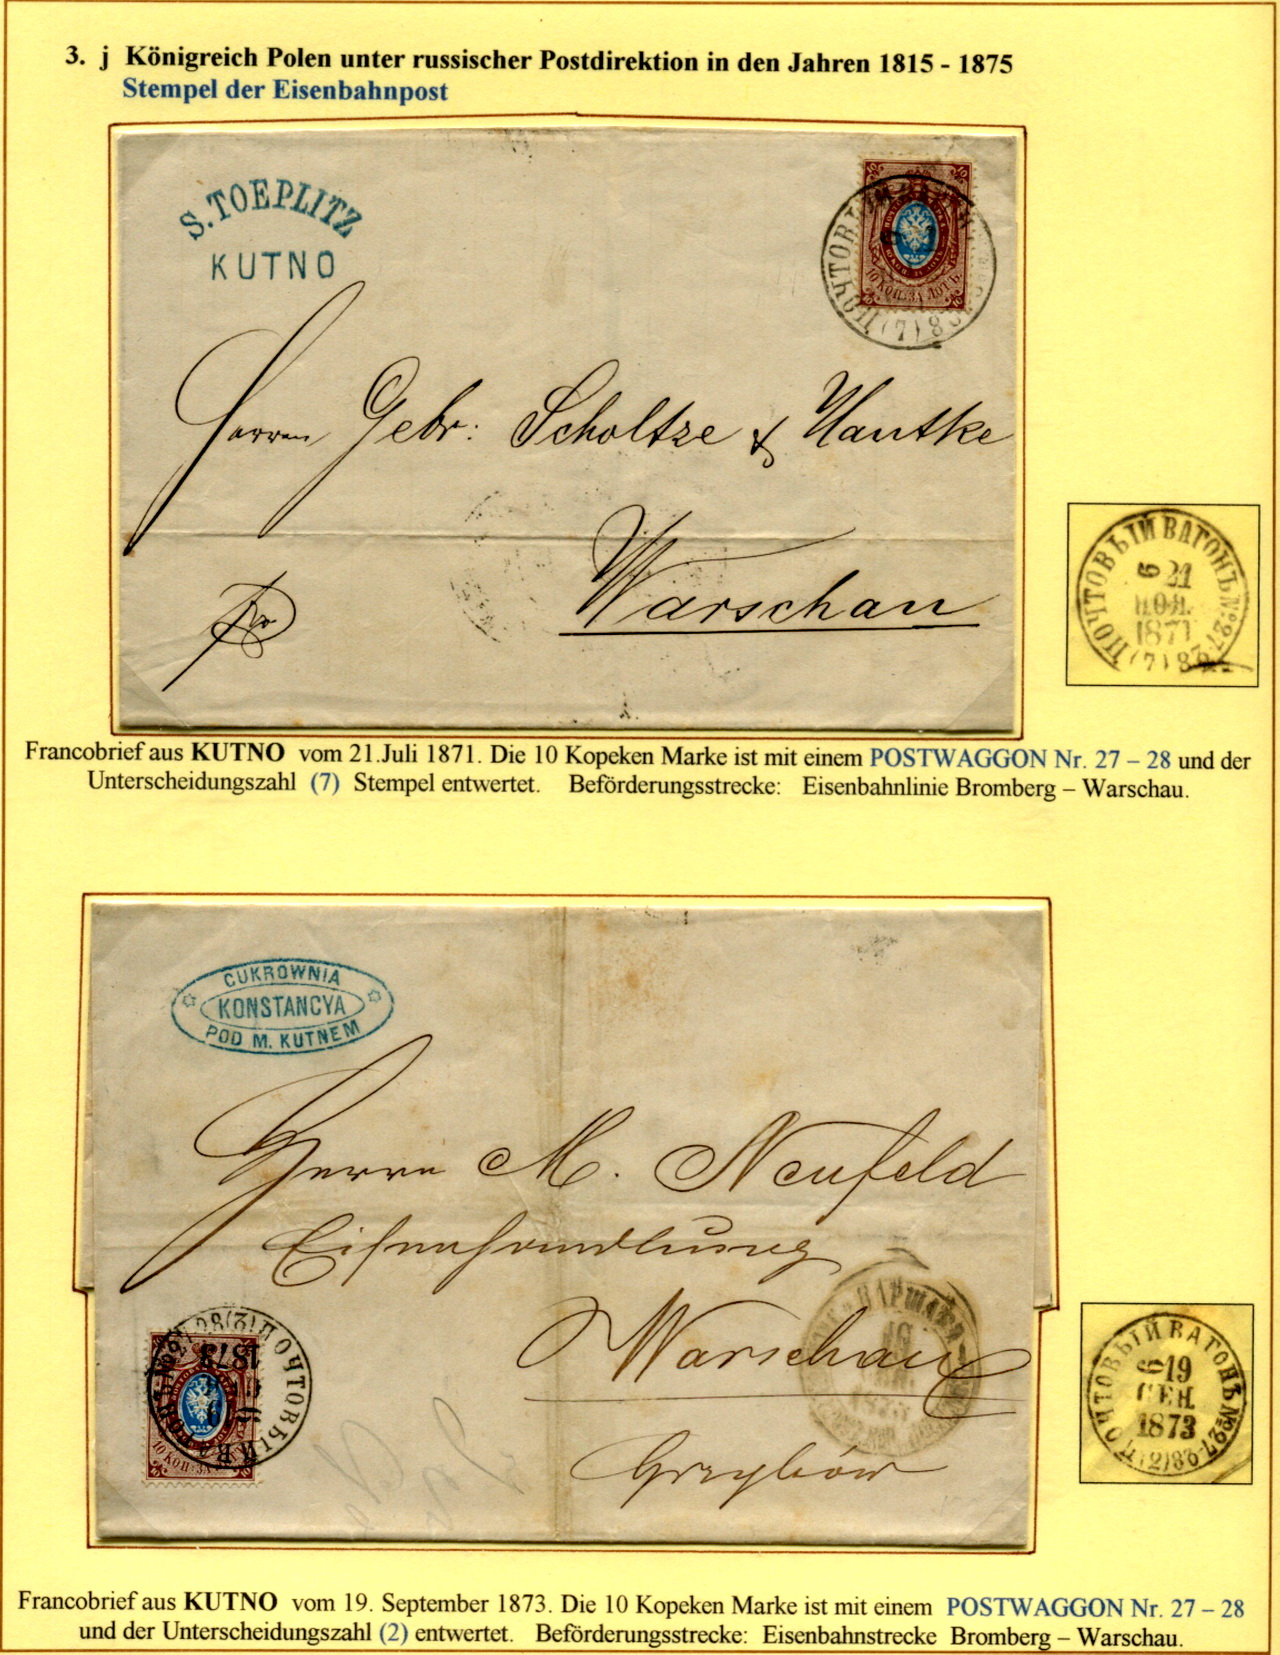 3. j Königreich Polen unter russischer Postdirektion in den Jahren 1815 - 1875
Stempel der Eisenbahnpost
S. TOEPLITZ
KUTNO
10 КОП. ЗА ЛОТЪ
ПОЧТОВЫЙ
(7) 8
Herren Gebr: Scholtze & Hantke
Warschau
ПОЧТОВЫЙ ВАГОНЪ № 27
6 21
1871
(7) 8
Francobrief aus KUTNO vom 21.Juli 1871. Die 10 Kopeken Marke ist mit einem POSTWAGGON Nr. 27 – 28 und der
Unterscheidungszahl (7) Stempel entwertet. Beförderungsstrecke: Eisenbahnlinie Bromberg – Warschau.
CUKROWNIA
KONSTANCYA
POD M. KUTNEM
Herrn M. Neufeld
Eisenhandlung
Warschau
Grzybów
ВАРШАВА
ПОЧТОВЫЙ ВАГОНЪ
1873
10 КОП. ЗА
ПОЧТОВЫЙ ВАГОНЪ № 27-28 (2)
6 19
СЕН
1873
Francobrief aus KUTNO vom 19. September 1873. Die 10 Kopeken Marke ist mit einem POSTWAGGON Nr. 27 – 28
und der Unterscheidungszahl (2) entwertet. Beförderungsstrecke: Eisenbahnstrecke Bromberg – Warschau.